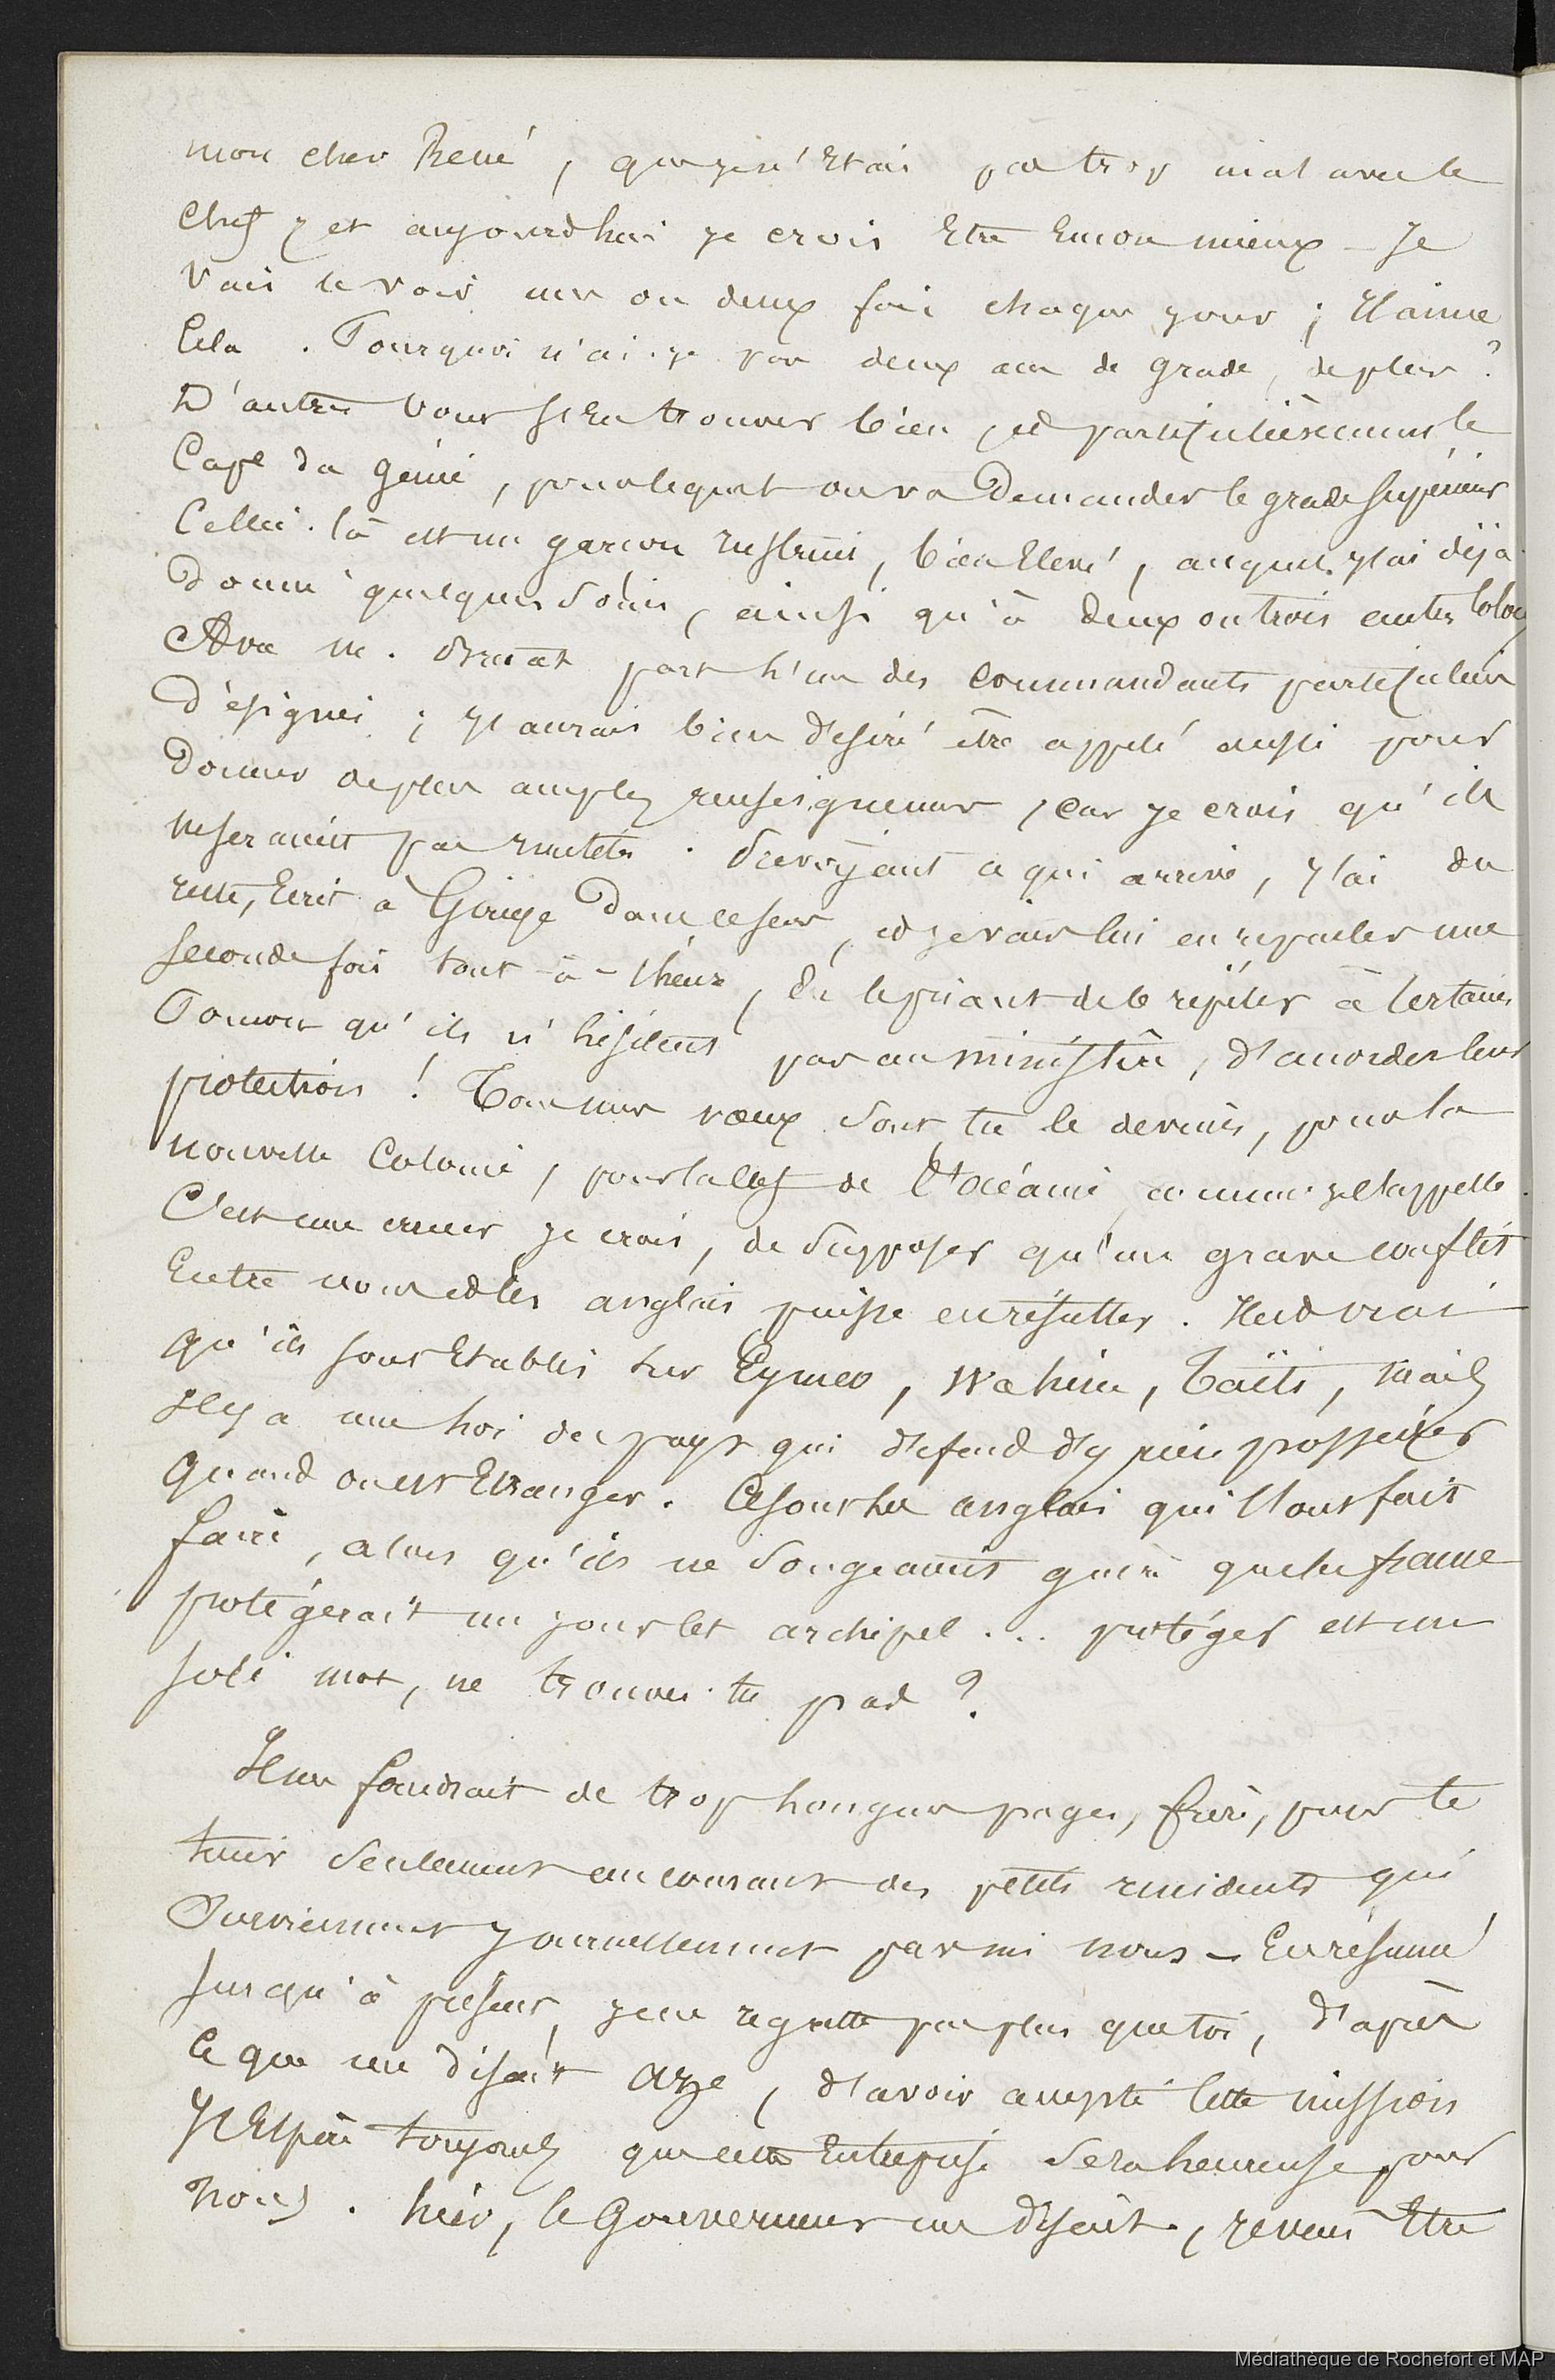 mon cher René, que je n'étais pas trop mal avec le
chef, et aujourd'hui je crois être encore mieux – Je
vais le voir une ou deux fois chaque jour ; il aime
cela. Pourquoi n'ai-je pas deux ans de grade, de plus ?
D'autres vont s'en trouver bien, et particulièrement le
Capne du génie, pour lequel on va demander le grade supérieur
Celui-là est un garçon instruit, bien élevé, auquel j'ai déjà
donné quelques soins, ainsi qu'à deux ou trois autres
Avec M. Bruat part l'un des commandants particuliers
désignés ; j'aurais bien désiré être appelé aussi pour
donner de plus amples renseignements, car je crois qu'ils
ne seraient pas inutiles. Prévoyant ce qui arrive, j'ai du
reste, écrit à dans ce sens, et je vais lui en reparler une
seconde fois tout-à-l'heure, en le priant de le répéter à certaines
Pourvu qu'ils n'hésitent pas au ministère, d'accorder leur
protection ! Tous mes vœux sont, tu le devines, pour la
nouvelle colonie, pour la clef de l'Océanie, comme je l'appelle.
C'est une erreur je crois, de supposer qu'un grave conflit
entre nous et les anglais puisse en résulter. Il est vrai
qu'ils sont établis sur Eymeo, Wahine, Taïti, mais
il y a une loi du pays qui défend d'y rien posséder
quand on est étranger. Ce sont les anglais qui l'ont fait
faire, alors qu'ils ne songeaient guère que la france
protégerait un jour cet archipel... protéger est un
joli mot, ne trouves-tu pas ?
Il me faudrait de trop longues pages, frère, pour te
tenir seulement au courant des petits incidents qui
surviennent journellement parmi nous – En résumé
jusqu'à présent, je ne regrette pas plus que toi, d'après
ce que me disait Aze, d'avoir accepté cette mission
J'espère toujours que cette entreprise sera heureuse pour
nous. hier, le Gouverneur me disait, je veux être
Médiathèque de Rochefort et MAP